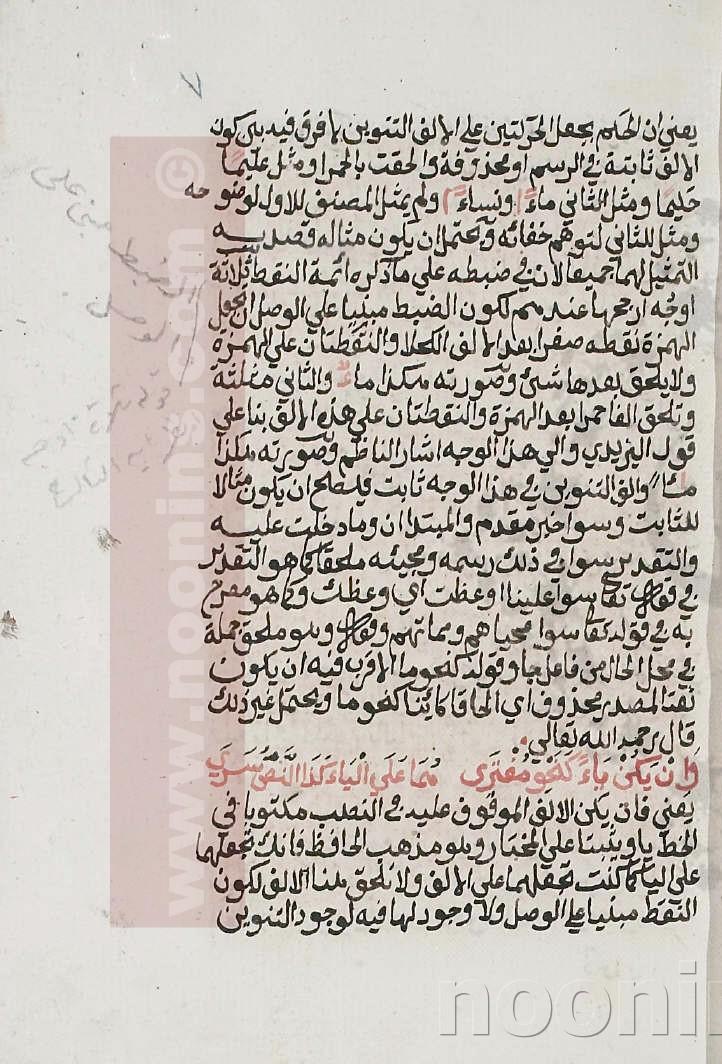 ٧
يعني ان الحكم بجعل الحركتين علي الالف التنوين لا فرق فيه بين كون
الالف ثابتة في الرسم او محذوفة والحقت بالحمرا ومثل عليمًا
حليمًا ومثل الثاني ماءً ونساءً ولم يمثل المصنف للاول لوضوحه
ومثل للثاني لتوهم خفائه ويحتمل ان يكون مثاله قصد به
التمثيل لهما جميعا لان في ضبطه علي ما ذكره ائمة النقط ثلاثة
اوجه ارجحها عندهم لكون الضبط مبنيا علي الوصل ان تجعل
الهمزة نقطة صفرا بعد الالف الكحلا والنقطتان علي الهمزة
ولا يلحق بعدها شئ وصورته هكذا ماءً والثاني مثله
وتلحق الفا حمرا بعد الهمزة والنقطتان علي هذه الالف بنا علي
قول اليزيدي والي هذا الوجه اشار الناظم وصورته هكذا
مائًا والف التنوين في هذا الوجه ثابت فيصلح ان يكون مثالا
للثابت وسوا خبر مقدم والمبتدا ان وما دخلت عليه
والتقدير سوا في ذلك رسمه ومجيئه ملحقا كما هو التقدير
في قوله تعالي سوا علينا اوعظت اي وعظك وكما هو مصرح
به في قوله تعالي سوا محياهم ومماتهم وقوله وهو ملحق جملة
في محل الحال من فاعل جا وقوله كنحو ما الاقرب فيه ان يكون
نعتا لمصدر محذوف اي الحاقا كائنا كنحو ما ويحتمل غير ذلك
قال رحمه الله تعالي
وَإنْ يَكُنْ يَاءً كَنَحْوِ مُفْتَرَى هُمَا عَلَي الْيَاءِ كَذَا النَّصُّ سَرَى
يعني فان يكن الالف الموقوف عليه في النصب مكتوبا في
الخط يا ويثبتا علي المختار وهو مذهب الحافظ فانك تجعلهما
علي اليا كما كنت تجعلهما علي الالف ولا تلحق هنا الالف لكون
النقط مبنيا علي الوصل ولا وجود لها فيه لوجود التنوين
الضبط مبني علي
الوصل
www.noonins.com ©
nooni